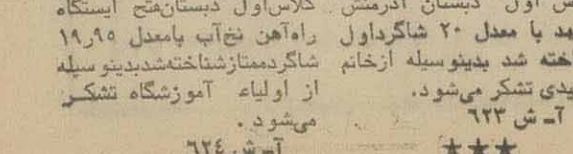 س اول دبستان آذرمنش
هد با معدل ۲۰ شاگرداول
خته شد بدینوسیله ازخانم
یدی تشکر می‌شود.
آ- ش ۶۲۳
★★★
کلاس‌اول دبستان‌فتح ایستگاه
راه‌آهن نخ‌آب بامعدل ۱۹ر۹۵
شاگردممتازشناخته‌شدبدینوسیله
از اولیاء آموزشگاه تشکر
می‌شود.
آ- ش ۶۲۴